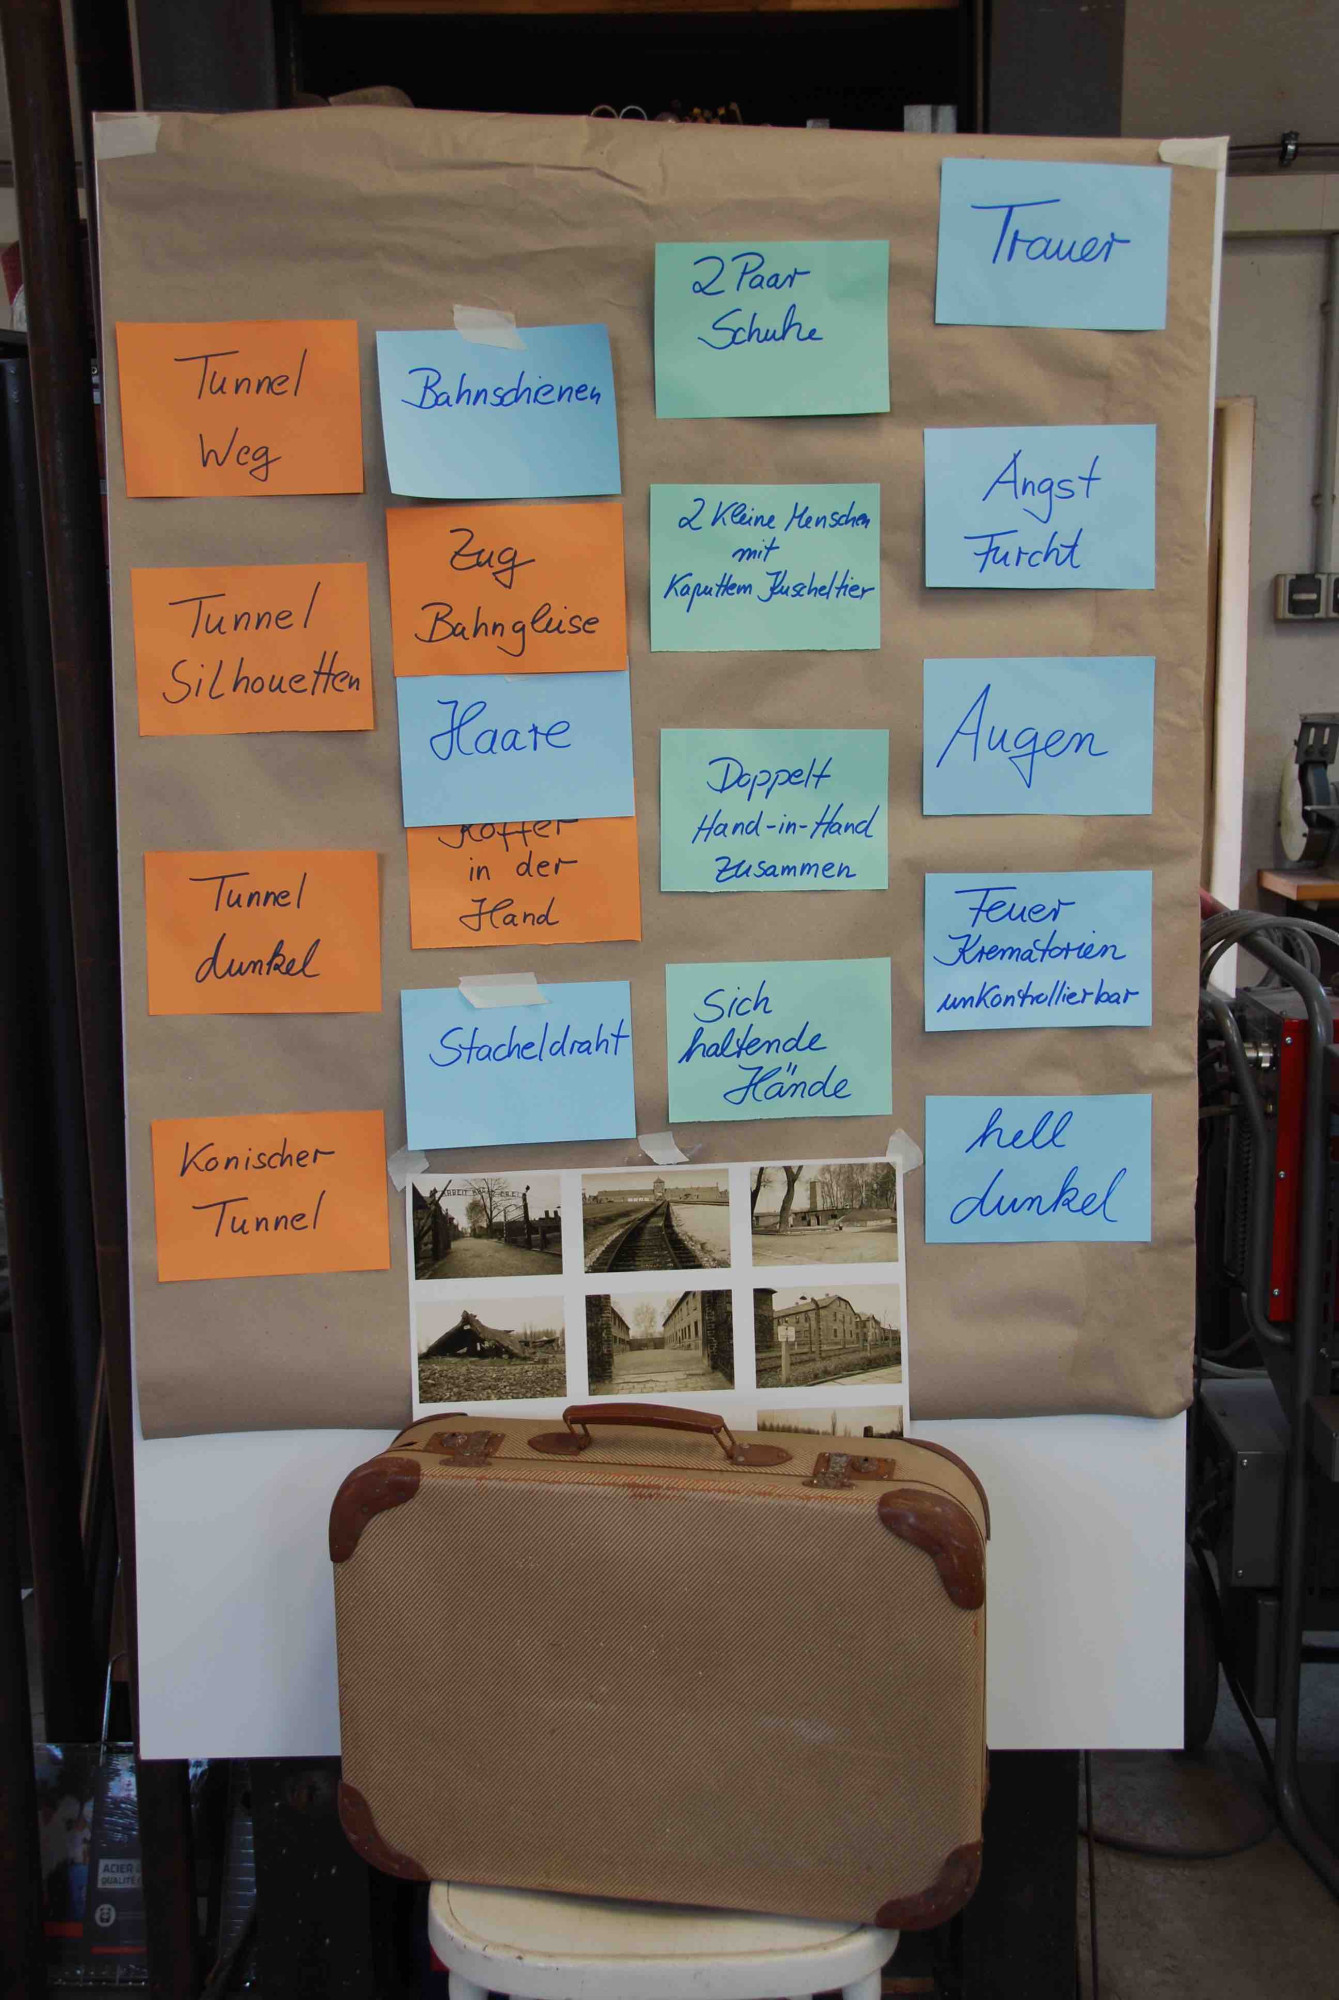 Tunnel
Weg
Tunnel
Silhouetten
Tunnel
dunkel
Konischer
Tunnel
Bahnschienen
Zug
Bahngleise
Haare
Koffer
in der
Hand
Stacheldraht
2 Paar
Schuhe
2 Kleine Menschen
mit
Kaputtem Kuscheltier
Doppelt
Hand-in-Hand
Zusammen
Sich
haltende
Hände
Trauer
Angst
Furcht
Augen
Feuer
Krematorien
unkontrollierbar
hell
dunkel
ARBEIT
ACIER
QUALITÉ